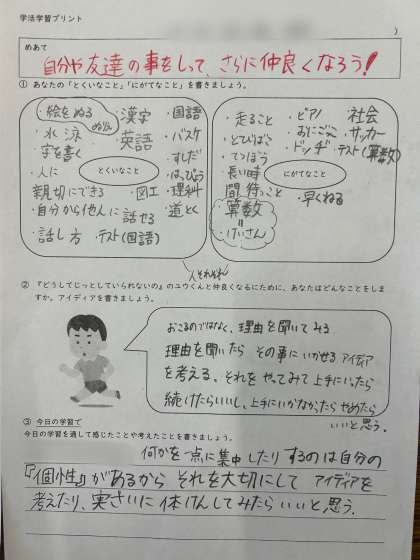 学活学習プリント
めあて
自分や友達の事をしって、さらに仲良くなろう!
① あなたの「とくいなこと」「にがてなこと」を書きましょう。
・絵をぬる ぬりえ
・水泳
・字を書く
・人に
親切にできる
・自分から他人に話せる
・話し方
・漢字
・英語
・図工
・テスト(国語)
・国語
・バスケ
・すしだ
・はっぴょう
・理科
・道とく
とくいなこと
・走ること
・とびばこ
・てつぼう
・長い時
間待つこと
・算数
=
・けいさん
・ピアノ
・おにごっこ
・ドッヂ
・社会
・サッカー
・テスト(算数)
・早くねる
にがてなこと
人それぞれ
② 『どうしてじっとしていられないの』のユウくんと仲良くなるために、あなたはどんなことをしま
すか。アイディアを書きましょう。
おこるのではなく、理由を聞いてみる
理由を聞いたら その事に いかせる アイディア
を考える。それを やってみて 上手にいったら
続けたらいいし、上手にいかなかったら やめたら
いいと思う。
③ 今日の学習で
今日の学習を通して感じたことや考えたことを書きましょう。
何かを一点に集中したりするのは自分の
『個性』があるから それを大切にして アイディアを
考えたり、実さいに 体けんしてみたらいいと思う。